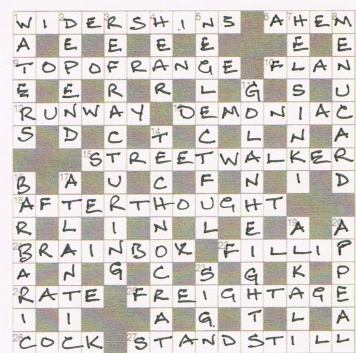 WIDERSHINS AHEM
A E E E E E E
TOPOFRANGE FLAN
E E R R L G S U
RUNWAY DEMONIAC
S D C T C L N A
STREETWALKER
B A U C F N I D
AFTERTHOUGHT
R L I N L E A A
BRAINBOX FILLIP
A N G C S G K P
RATE FREIGHTAGE
I I A G T L A
COCK STANDSTILL